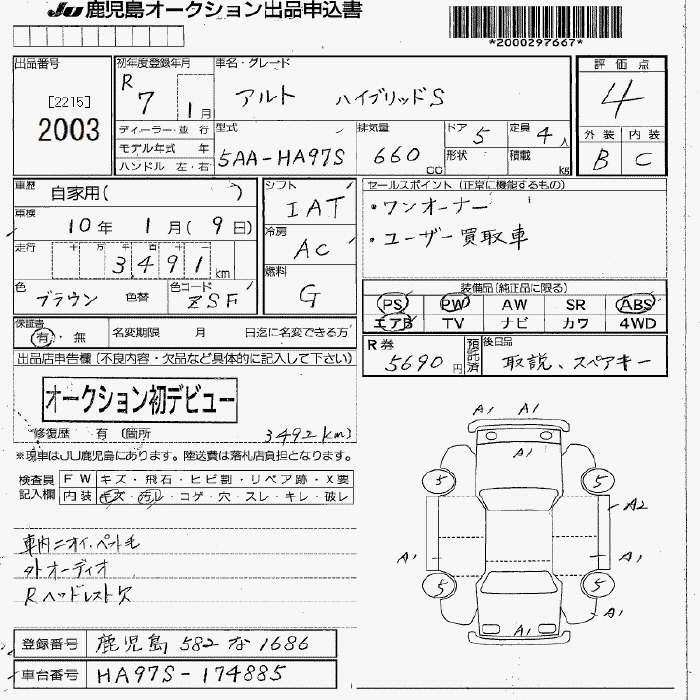 JU鹿児島オークション出品申込書
*2000297667*
出品番号
[2215]
2003
初年度登録年月
R 7 1月
車名・グレード
アルト ハイブリッドS
ディーラー・並行
モデル年式 年
ハンドル 左・右
型式
5AA-HA97S
排気量
660 cc
ドア 5
定員 4人
形状
積載 kg
評価点
4
外装 内装
B C
車歴 自家用( )
車検 10年 1月(9日)
走行 十 万 千 百 十 一
3491km
色 ブラウン 色替
色コード ZSF
シフト
IAT
冷房
AC
燃料
G
セールスポイント(正常に機能するもの)
・ワンオーナー
・ユーザー買取車
装備品(純正品に限る)
PS PW AW SR ABS
エアB TV ナビ カワ 4WD
保証書
有・無
名変期限 月 日迄に名変できる方
R券 5690円
預託済
後日品 取説、スペアキー
出品店申告欄(不良内容・欠品など具体的に記入して下さい)
オークション初デビュー
修復歴 有 (箇所 3492km)
※現車はJU鹿児島にあります。陸送費は落札店負担となります。
検査員記入欄
FW キズ・飛石・ヒビ割・リペア跡・X要
内装 キズ・汚レ・コゲ・穴・スレ・キレ・破レ
車内ニオイ・ペット毛
外オーディオ
Rヘッドレスト欠
登録番号 鹿児島 582 な 1686
車台番号 HA97S-174885
A1 A1
A1
5 5
A2
A1 A1
5 5
A1
A1